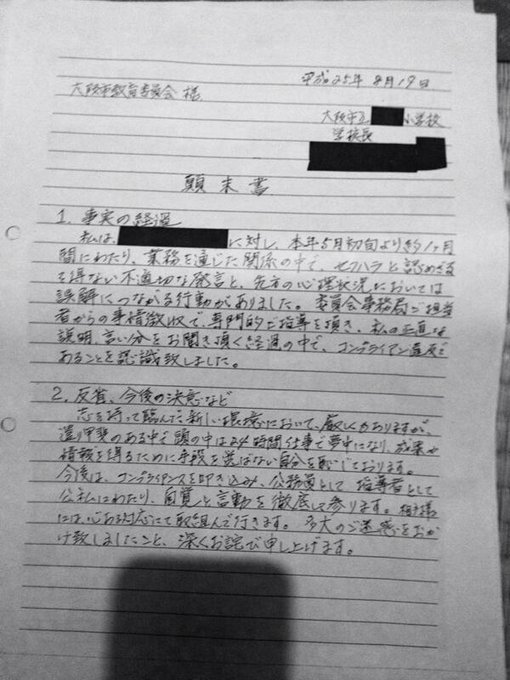 平成25年8月19日
大阪市教育委員会 様
大阪市立 小学校
学校長
顛末書
1. 事実の経過
私は、 に対し、本年5月初旬より約1ヶ月
間にわたり、業務を通じた関係の中で、セクハラと認めざる
を得ない不適切な発言と、先方の心理状況においては
誤解につながる行動がありました。委員会事務局ご担当
者からの事情徴収で、専門的ご指導を頂き、私の正直な
説明、言い分をお聞き頂く経過の中で、コンプライアンス違反で
あることを認識致しました。
2. 反省、今後の決意など
志を持って臨んだ新しい環境において、厳しくもありますが、
遣り甲斐のある中で頭の中は24時間仕事で夢中になり、成果や
情報を得るために手段を選ばない自分を恥じております。
今後は、コンプライアンスを叩き込み、公務員として指導者として
公私にわたり、自覚と言動を徹底して参ります。相手様
には、心ある対応にて取組んで行きます。多大のご迷惑をおか
け致しましたこと、深くお詫び申し上げます。